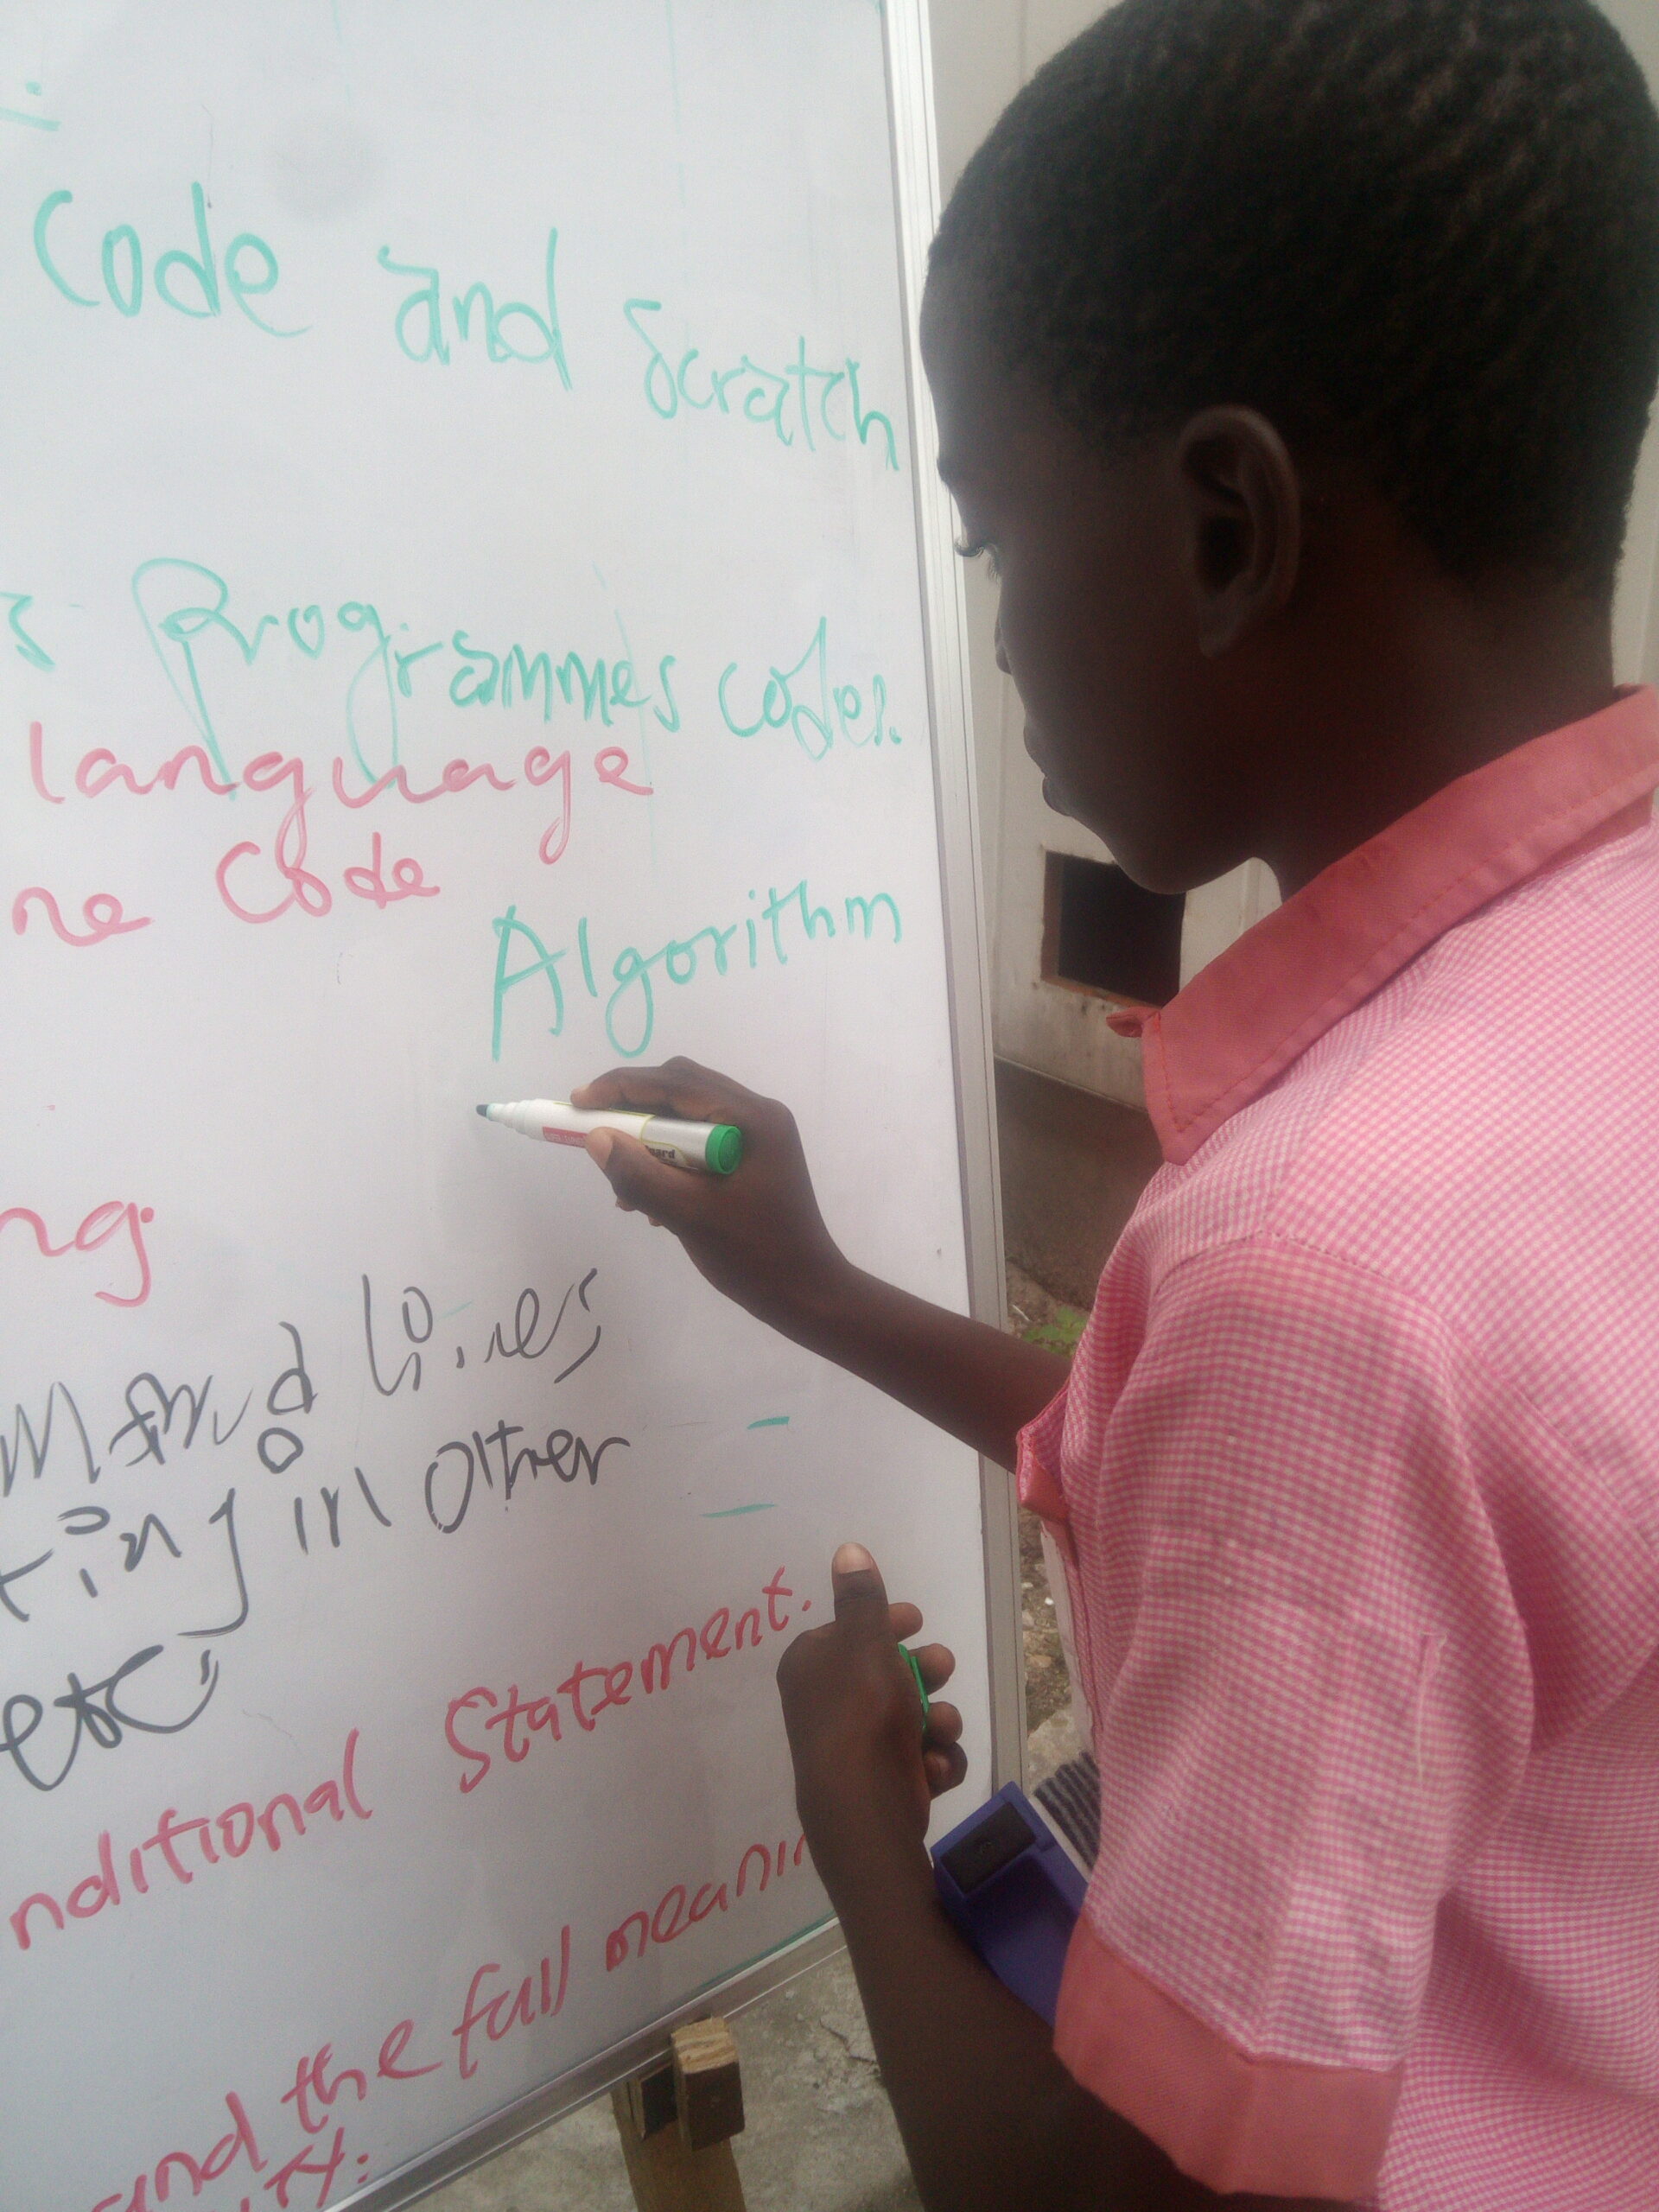 Code and Scratch
s Programmes codes.
language
ne Code
Algorithm
ng.
mmand lines
king in other
etc
nditional Statement.
and the full meanin
ty: